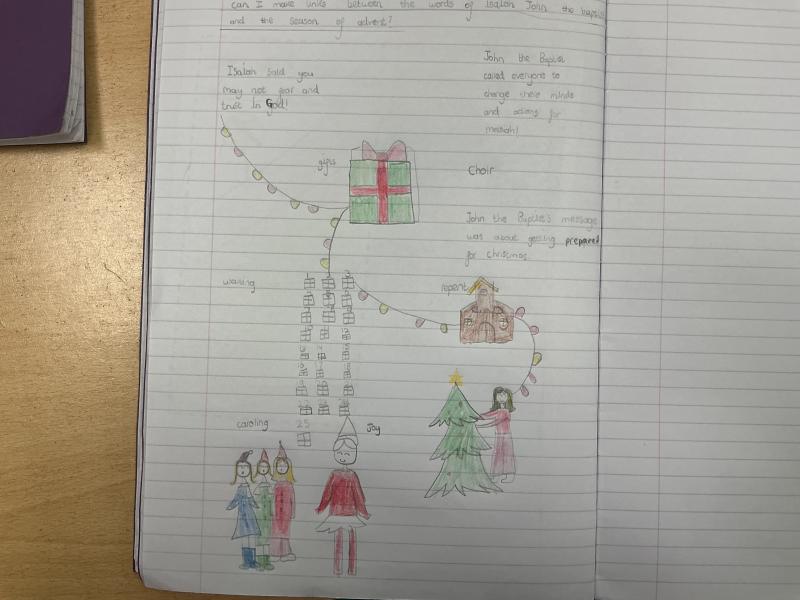 can I make links between the words of Isaiah John the baptist
and the season of advent?
Isaiah said you
may not fear and
trust in God!
John the Baptist
called everyone to
change their minds
and actions for
messiah!
gifts
Choir
John the Baptist's message
was about getting prepared
for christmas.
waiting
repent
caroling
25
Joy